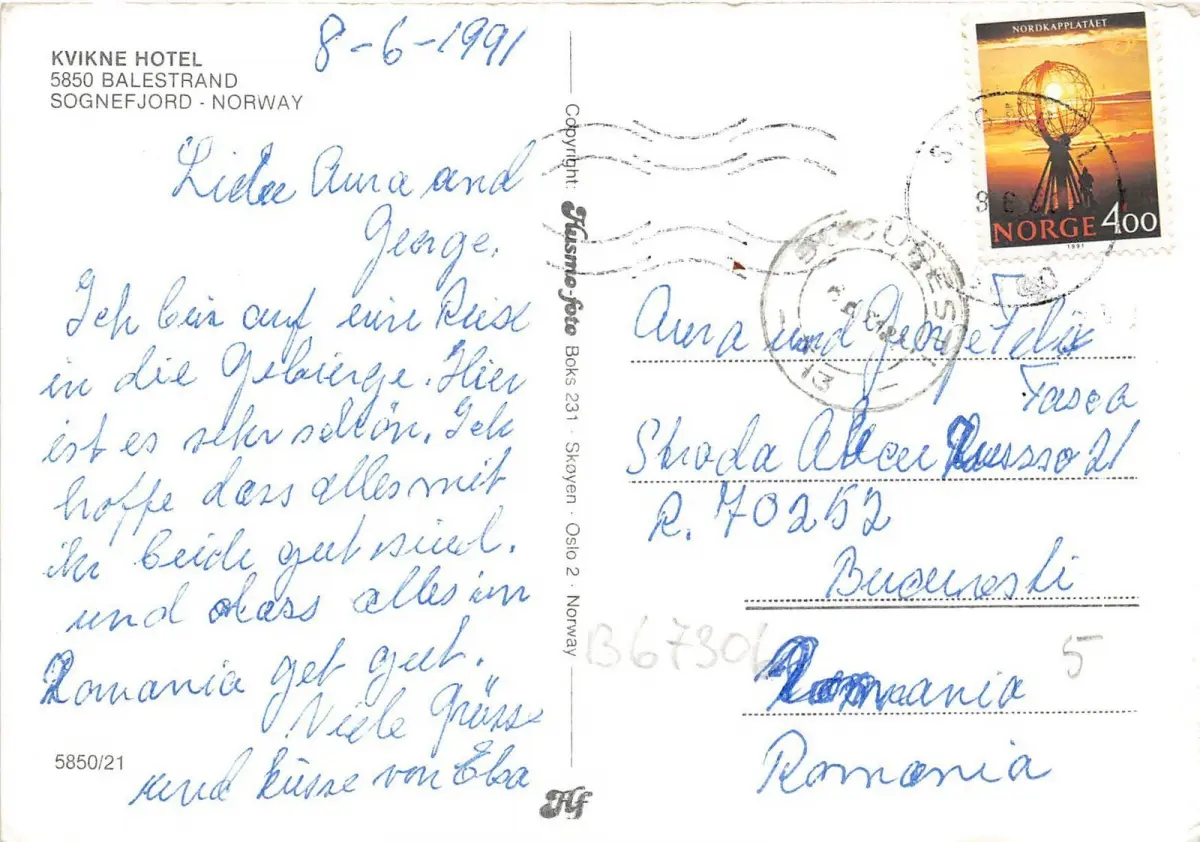 KVIKNE HOTEL
5850 BALESTRAND
SOGNEFJORD - NORWAY
8-6-1991
Aura and
George.
Ich bin auf eine Reise
in die Gebierge. Hier
ist es sehr schön. Ich
hoffe dass alles mit
ihr beide gut sind.
und dass alles in
Romania get gut.
Viele Grüsse
und küsse von
5850/21
Copyright: Husmo-foto Boks 231 · Skøyen · Oslo 2 · Norway
Hf
NORDKAPPLATÅET
NORGE 4.00
1991
BUCURESTI
Aura und
Tasca
Strada Russo 21
R. 70252
Bucuresti
B67306
5
Romania
Romania